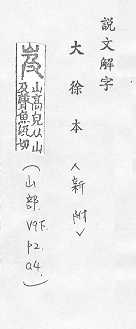 説文解字
大徐本 人新附
岌 山高皃从山
及聲魚汲切
(山部. V9下. p2. a4.)